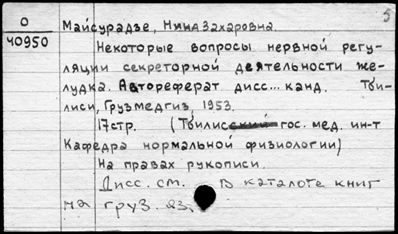 5
О
40950
Майсурадзе, Нина Захаровна.
Некоторые вопросы нервной регу-
ляции секреторной деятельности же-
лудка. Автореферат дисс... канд. Тби-
лиси, Грузмедгиз, 1953.
17стр. (Тбилисский гос. мед. ин-т
Кафедра нормальной физиологии)
На правах рукописи.
Дисс. см. в каталоге книг
на груз. яз.